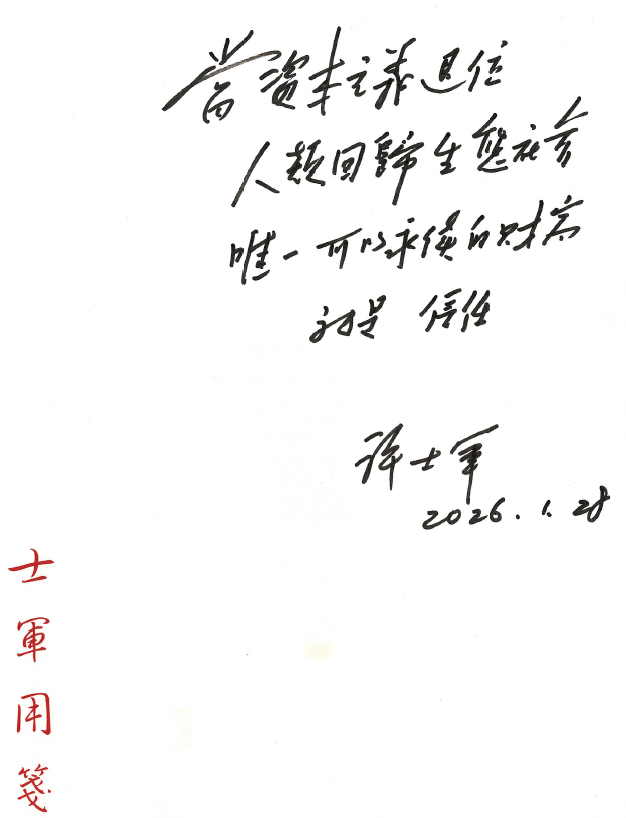 當資本主義退位
人類回歸生態社會
唯一可以永續的財富
就是 信任
許士軍
2026.1.28
士軍用箋